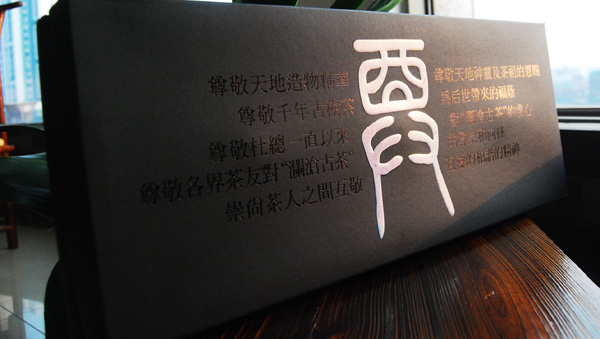 尊敬天地造物精華
尊敬千年古樹茶
尊敬杜總一直以來
尊敬各界茶友對“瀾滄古茶”
崇尚茶人之間互敬
尊敬天地神靈及茶祖的恩賜
爲后世帶來的福蔭
對“瀾滄古茶”的
的精神